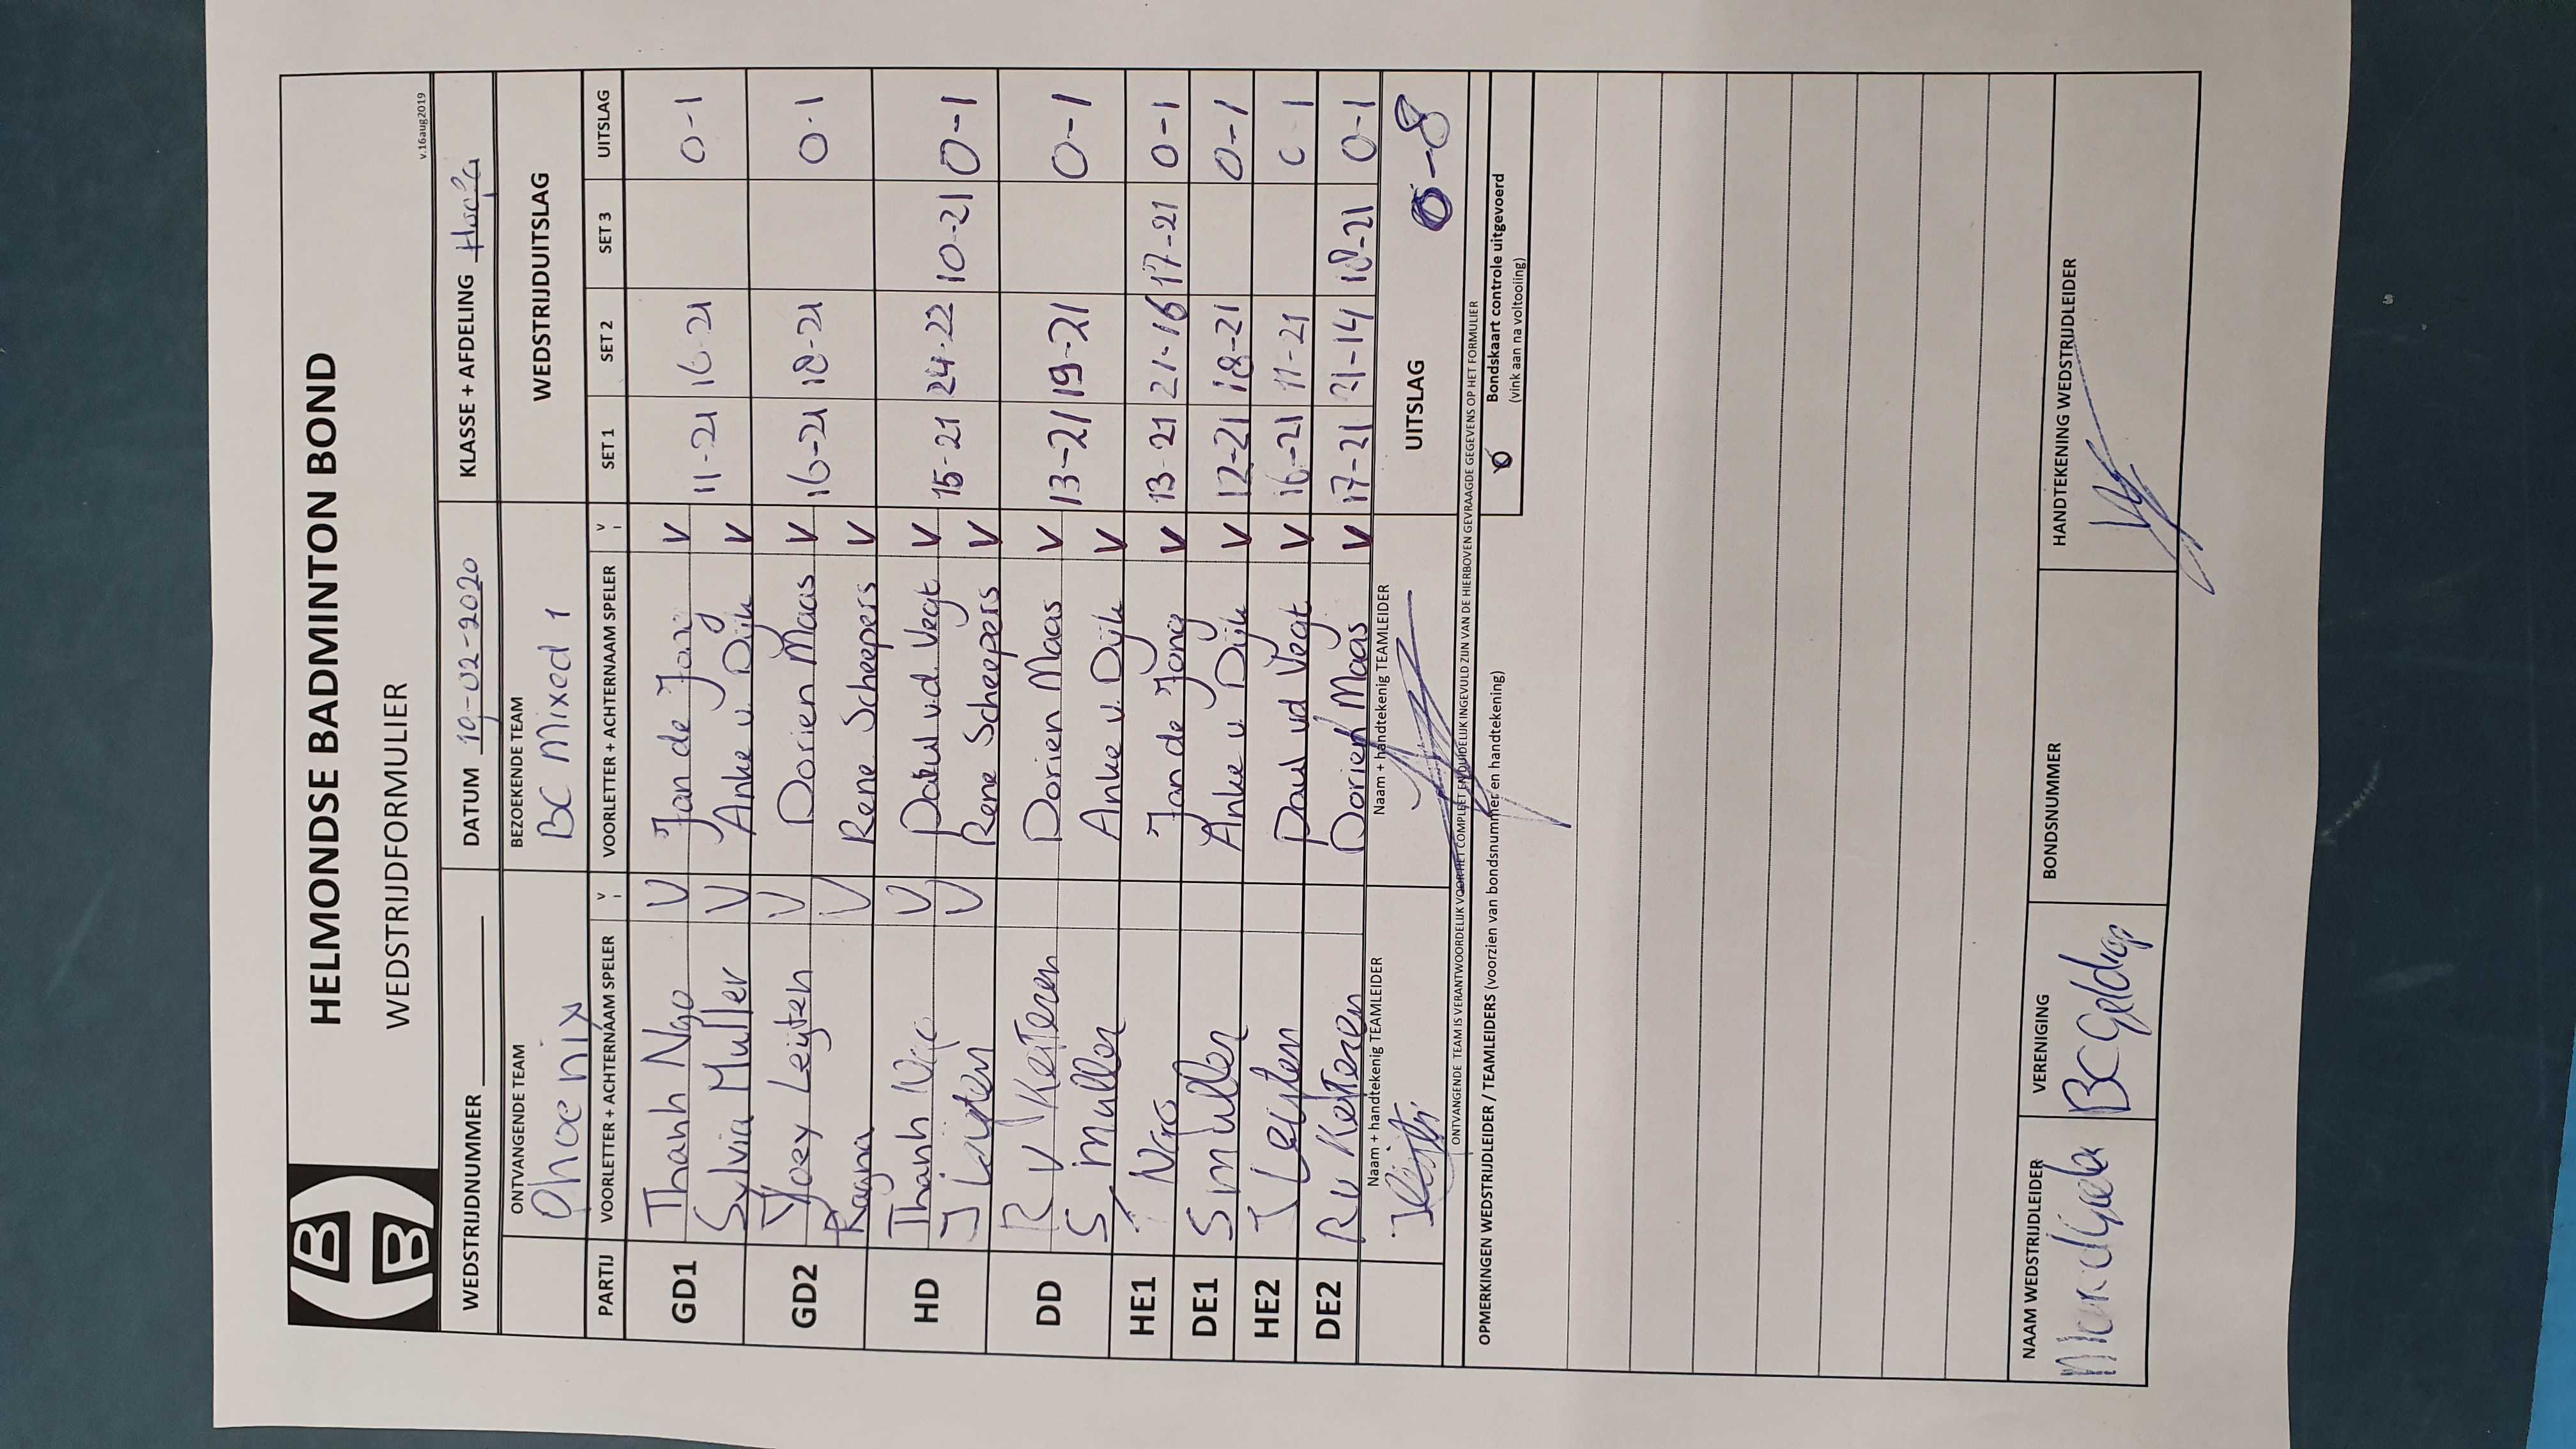 HELMONDSE BADMINTON BOND
WEDSTRIJDFORMULIER
v.16aug2019
WEDSTRIJDNUMMER DATUM 19-02-2020 KLASSE + AFDELING
ONTVANGENDE TEAM BEZOEKENDE TEAM WEDSTRIJDUITSLAG
Phoenix BC Mixed 1
PARTIJ VOORLETTER + ACHTERNAAM SPELER V VOORLETTER + ACHTERNAAM SPELER V SET 1 SET 2 SET 3 UITSLAG
GD1 Thanh Ngo V Jan de Jong V 11-21 16-21 0-1
Sylvia Muller V Anke v. Dijk V
GD2 Joey Leijten V Dorien Maas V 16-21 18-21 0-1
Ragna V Rene Scheepers V
HD Thanh Ngo V Paul v.d. Vegt V 15-21 24-22 10-21 0-1
J Leijten V Rene Scheepers V
DD R v Keiteren Dorien Maas V 13-21 19-21 0-1
S Muller Anke v. Dijk V
HE1 T Ngo Jan de Jong V 13-21 21-16 17-21 0-1
DE1 S Muller Anke v. Dijk V 12-21 18-21 0-1
HE2 J Leijten Paul vd Vegt V 16-21 11-21 0-1
DE2 R v Keiteren Dorien Maas V 17-21 21-14 18-21 0-1
Naam + handtekenig TEAMLEIDER Naam + handtekenig TEAMLEIDER UITSLAG 0-8
ONTVANGENDE TEAM IS VERANTWOORDELIJK VOOR HET COMPLEET EN DUIDELIJK INGEVULD ZIJN VAN DE HIERBOVEN GEVRAAGDE GEGEVENS OP HET FORMULIER
OPMERKINGEN WEDSTRIJDLEIDER / TEAMLEIDERS (voorzien van bondsnummer en handtekening)
Bondskaart controle uitgevoerd
(vink aan na voltooiing)
NAAM WEDSTRIJDLEIDER VERENIGING BONDSNUMMER HANDTEKENING WEDSTRIJDLEIDER
BC Geldrop